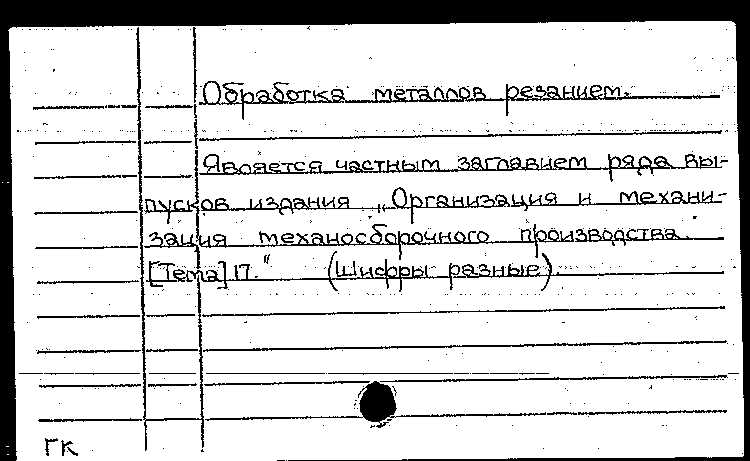 Обработка металлов резанием.
Является частным заглавием ряда вы-
пусков издания „Организация и механи-
зация механосборочного производства.
[Тема] 17." (Шифры разные).
ГК